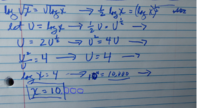 log √x = √log x → ½ log x = (log x)^½ →
let U = log x → ½ U = U^½ →
U = 2U^½ → U² = 4U →
U²/U = 4 → U = 4 →
log x = 4 → 10⁴ = 10,000 →
x = 10,000